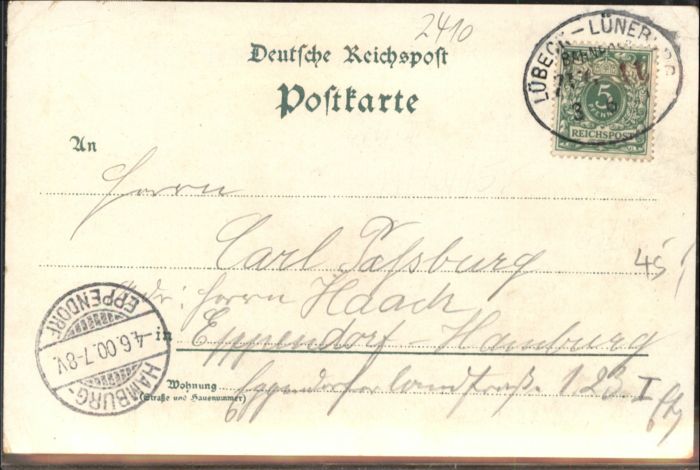 2410
Deutsche Reichspost
Postkarte
LÜBECK - LÜNEBURG
BAHNPOST
ZUG
3 6
5
REICHSPOST
An
Herrn
Carl Paßburg
45
Adr: Herrn Haack
in Eppendorf-Hamburg
Wohnung Eppendorfer Landstraß. 123. I
(Straße und Hausnummer)
EPPENDORF
-4.6.00.7-8V.
HAMBURG-